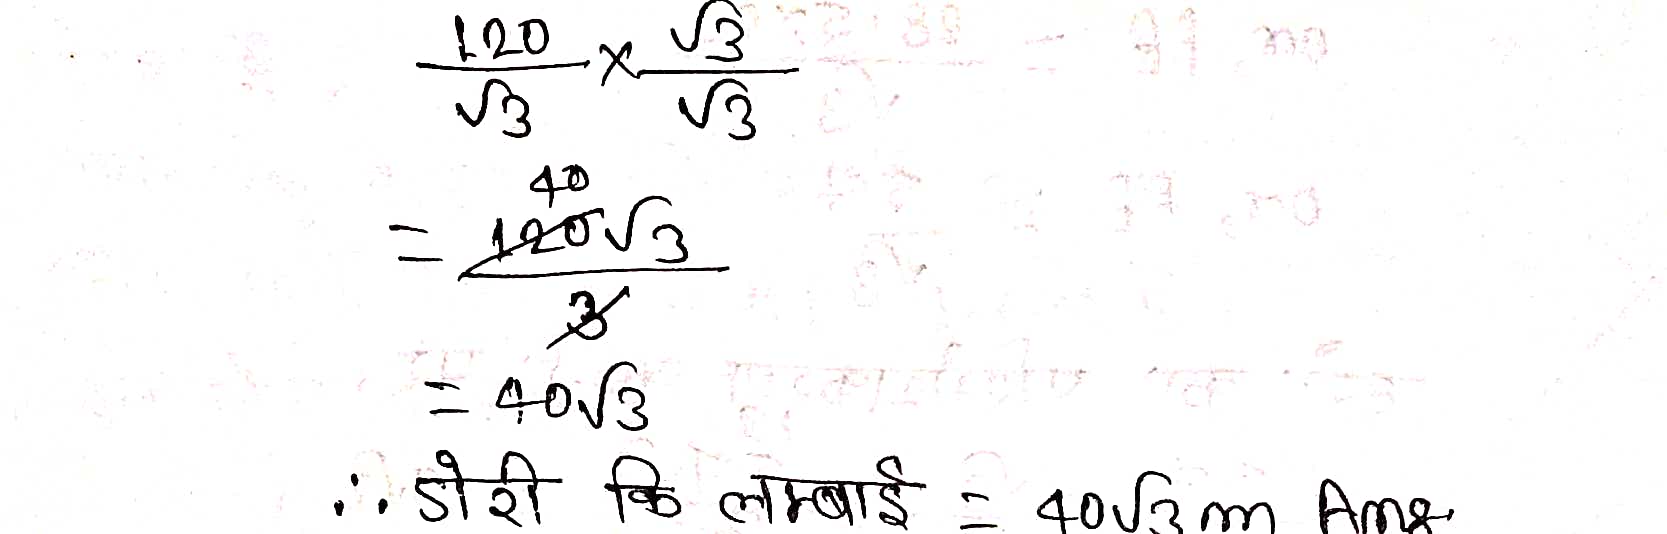 120/√3 × √3/√3
= 40
120√3/3
= 40√3
∴ डोरी कि लम्बाई = 40√3 m Ans